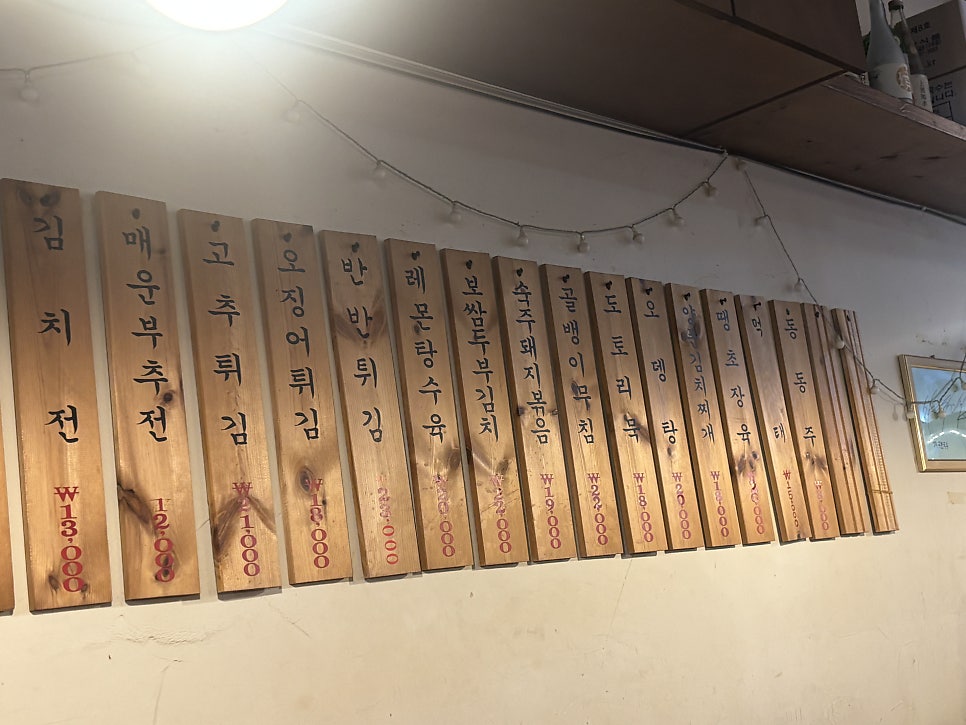 김치전 ₩13,000
매운부추전 12,000
고추튀김 ₩21,000
오징어튀김 ₩18,000
반반튀김 23,000
레몬탕수육 ₩20,000
보쌈두부김치
숙주돼지볶음 ₩19,000
골뱅이무침 ₩22,000
도토리묵 ₩18,000
오뎅탕 ₩20,000
김치찌개 ₩18,000
땡초장육
먹태
동동주